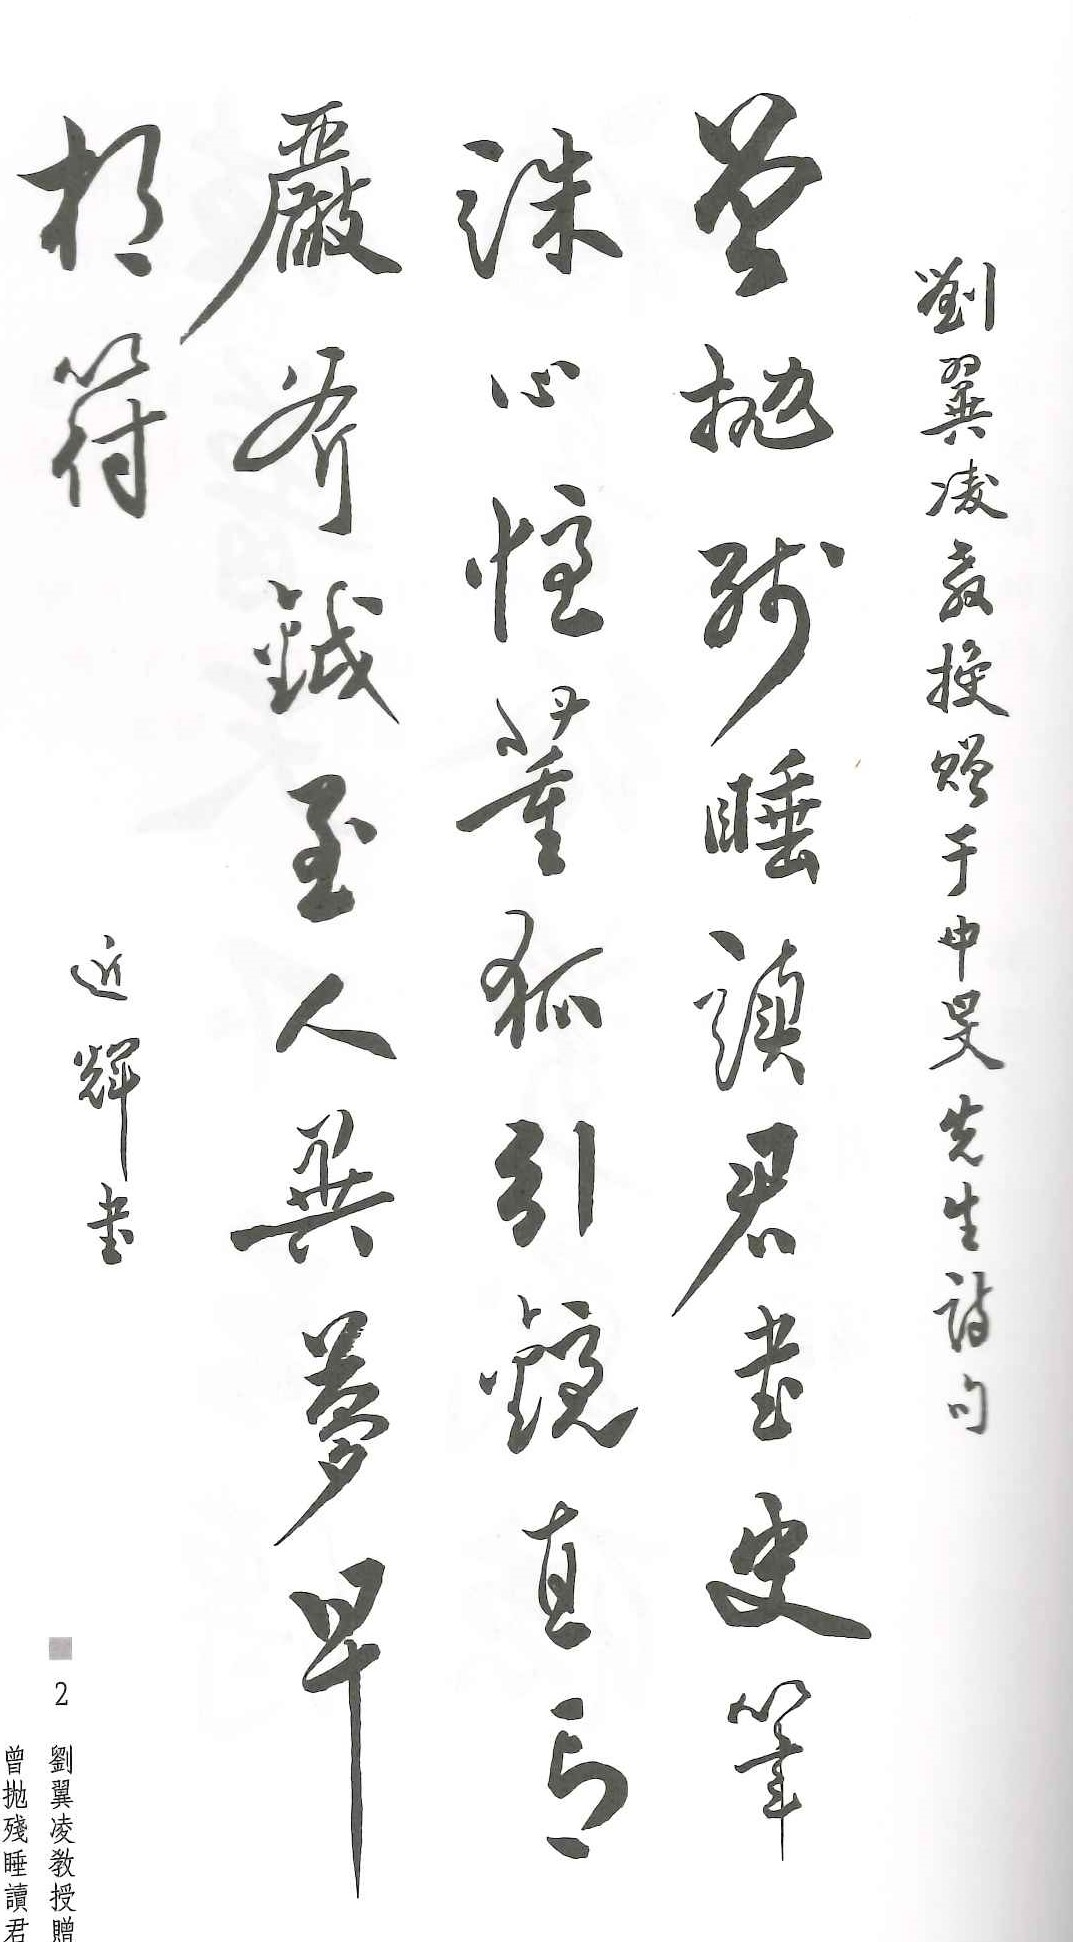 劉翼凌教授贈于中旻先生詩句
曾拋殘睡讀君書史筆
誅心惟董狐引鏡直言
嚴斧鉞至人異夢早
相符
近輝書
2 劉翼凌教授贈
曾拋殘睡讀君